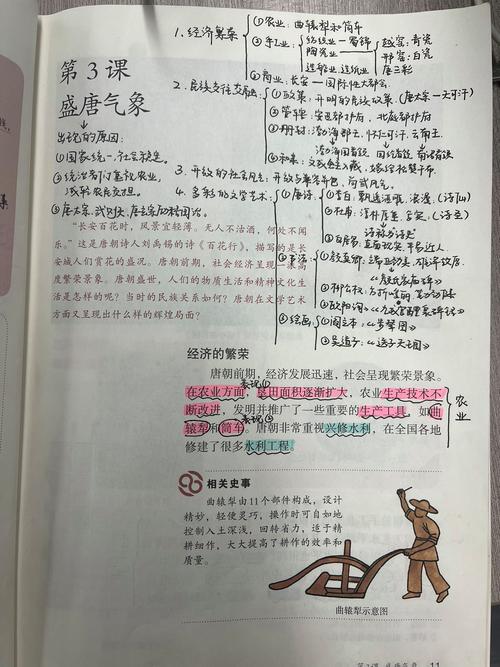 第3课
盛唐气象
出现的原因:
①国家统一,社会稳定。
1.经济繁荣
①农业:曲辕犁和筒车
②手工业
纺织业—蜀锦
陶瓷业
越窑:青瓷
邢窑:白瓷
唐三彩
造船业、造纸业
③商业:长安—国际性大都会
2.民族交往交融
①政策:开明的民族政策。(唐太宗—天可汗)
②管辖:安西都护府,北庭都护府
③册封:渤海郡王,怀仁可汗,云南王
④和亲:文成公主入藏,
3.开放的社会风气:
4.多彩的文学艺术
①唐诗
(诗仙)
(诗圣)
③白居易:
②书法
①颜真卿:
②柳公权:
③欧阳询:
④绘画
①阎立本:《步辇图》
②吴道子:《送子天王图》
“长安百花时,风景宜轻薄。无人不沽酒,何处不闻
乐。”这是唐朝诗人刘禹锡的诗《百花行》,描写的是长
安城人们赏花的盛况。唐朝前期,社会经济呈现一派高
度繁荣景象。唐朝盛世,人们的物质生活和精神文化生
活是怎样的呢?当时的民族关系如何?唐朝在文学艺术
方面又呈现出什么样的辉煌局面?
经济的繁荣
唐朝前期,经济发展迅速,社会呈现繁荣景象。
表现①
在农业方面,垦田面积逐渐扩大,农业生产技术不
断改进,发明并推广了一些重要的生产工具,如曲
表现②
辕犁和筒车。唐朝非常重视兴修水利,在全国各地
修建了很多水利工程。
农业
相关史事
曲辕犁由11个部件构成,设计
精妙,轻便灵巧,操作时可自如地
控制入土深浅,回转省力,适于精
耕细作,大大提高了耕作的效率和
质量。
曲辕犁示意图
第3课 盛唐气象 11